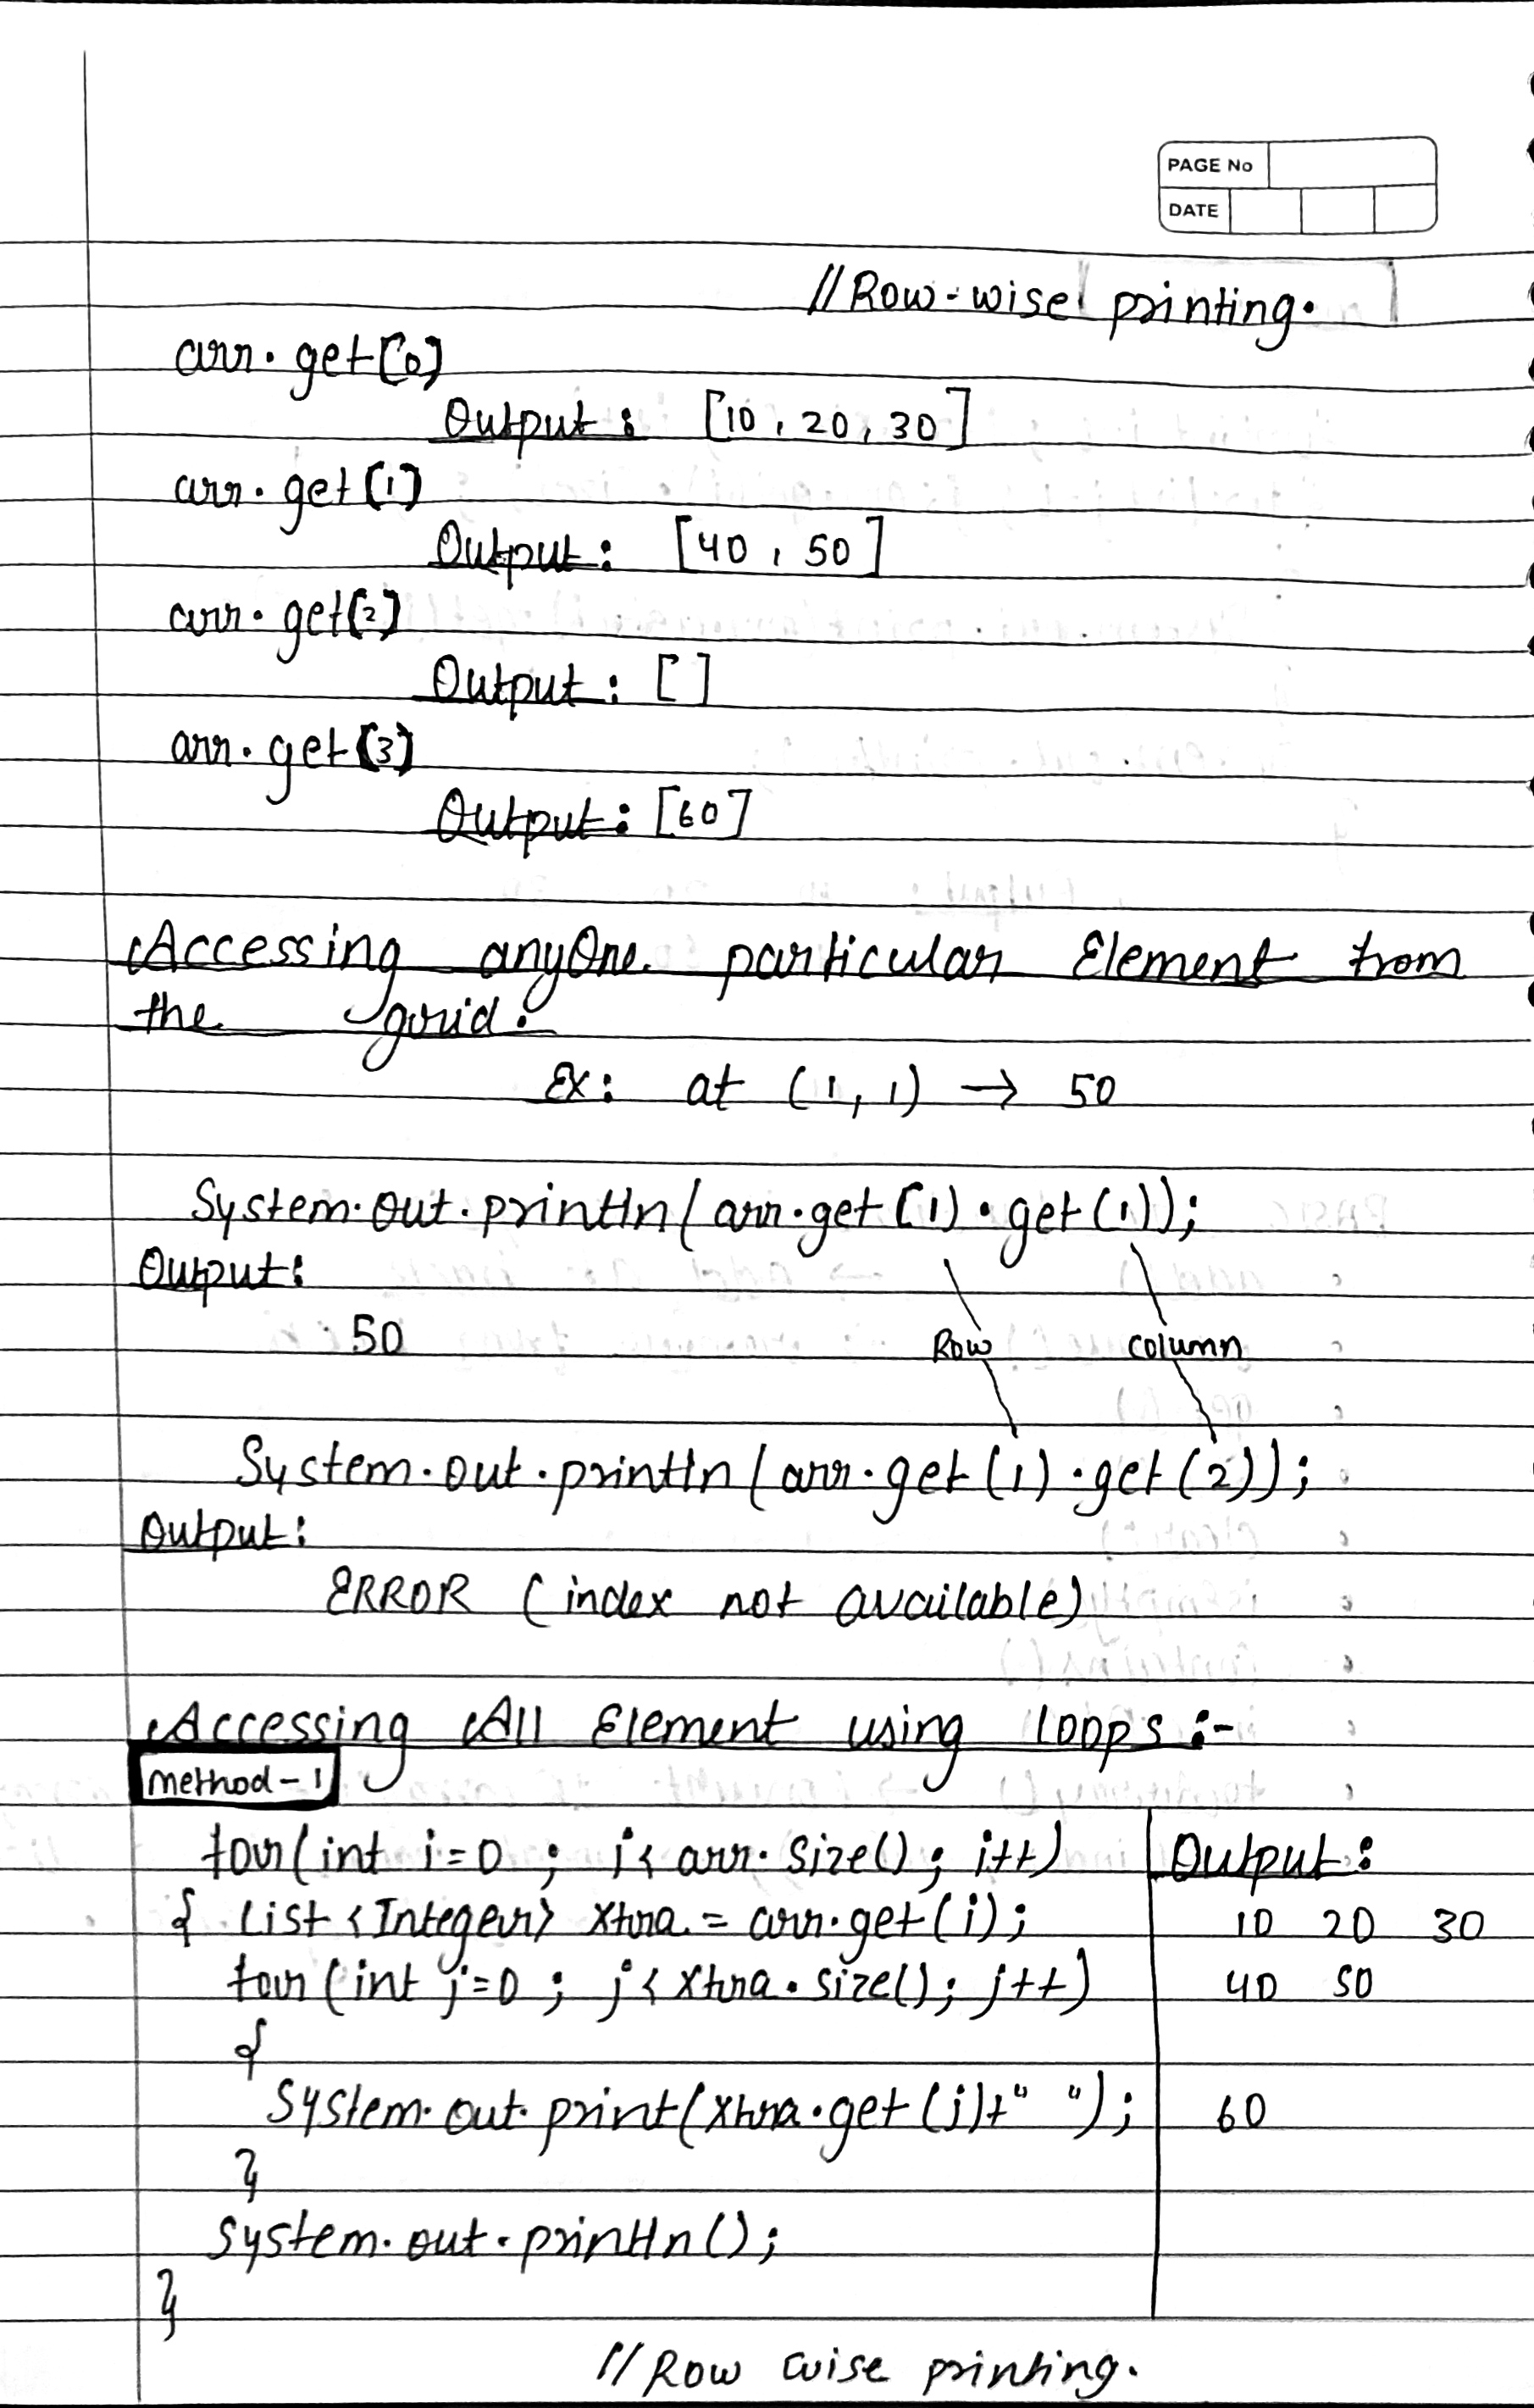 PAGE No
DATE
// Row-wise printing.
arr.get[0]
Output: [10, 20, 30]
arr.get(1)
Output: [40, 50]
arr.get(2)
Output: []
arr.get(3)
Output: [60]
Accessing anyOne particular Element from
the grid:
Ex: at (1, 1) → 50
System.out.println(arr.get(1).get(1));
Output:
50
Row column
System.out.println(arr.get(1).get(2));
Output:
ERROR (index not available)
Accessing All Element using loops :-
method-1
for(int i=0 ; i< arr.size(); i++) Output:
{ List <Integer> xtra = arr.get(i); 10 20 30
for(int j=0 ; j< xtra.size(); j++) 40 50
{
System.out.print(xtra.get(j)+" "); 60
}
System.out.println();
}
// Row wise printing.